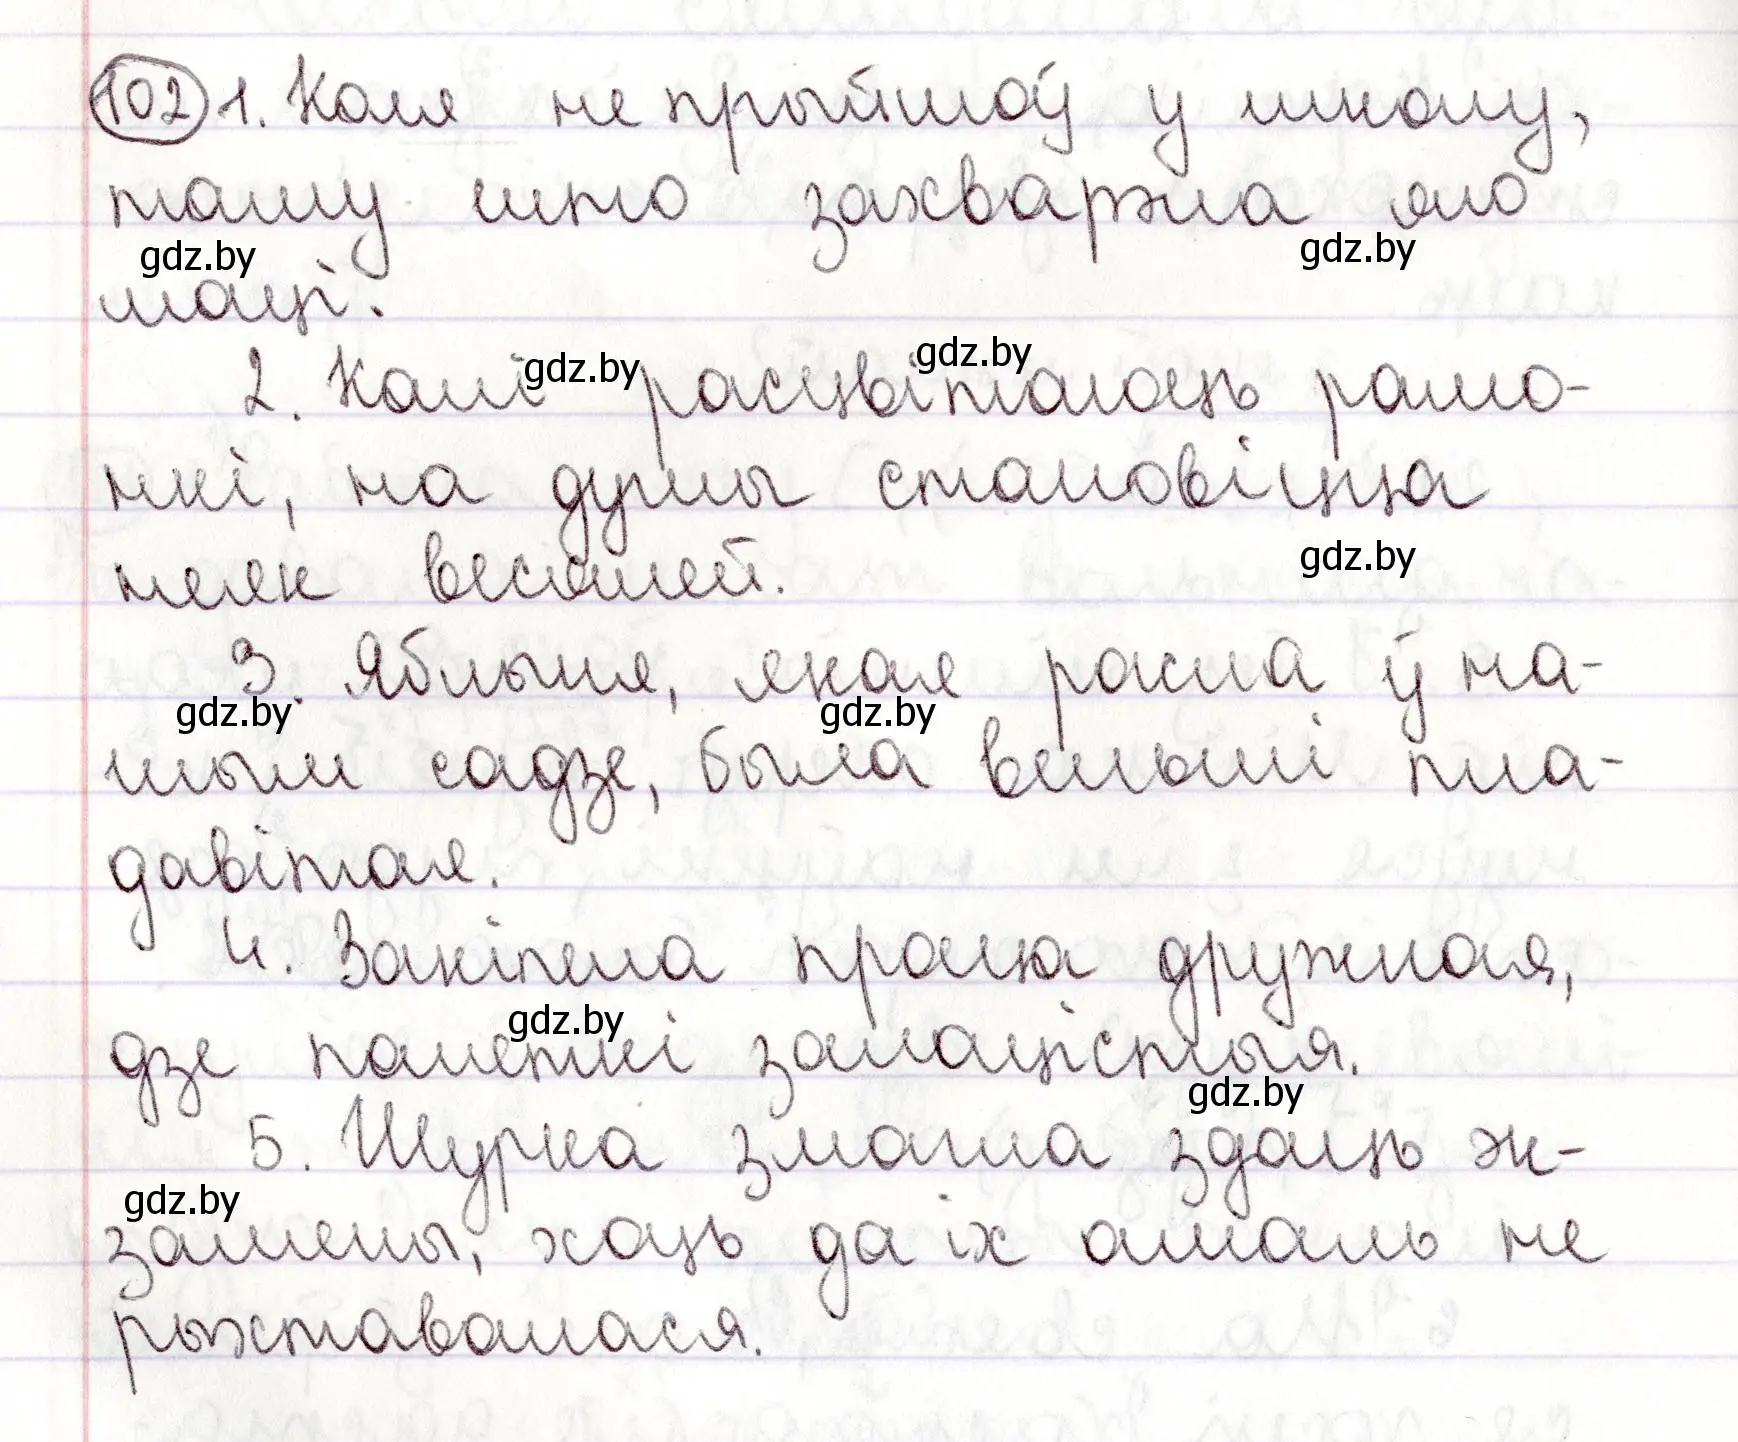 102 1. Коля не прыйшоў у школу,
таму што захварэла яго
gdz.by gdz.by
маці.
2. Калі расцвіталаць рамо-
gdz.by gdz.by
нкі, на душы становіцца
неяк весялей.
gdz.by
3. Яблыня, якая расла ў на-
gdz.by gdz.by
шым садзе, была вельмі пла-
давітая.
4. Закіпела праца дружная,
gdz.by
дзе палеткі залацістыя.
gdz.by
5. Шурка змагла здаць эк-
gdz.by
замены, хаць да іх амаль не
рыхтавалася.